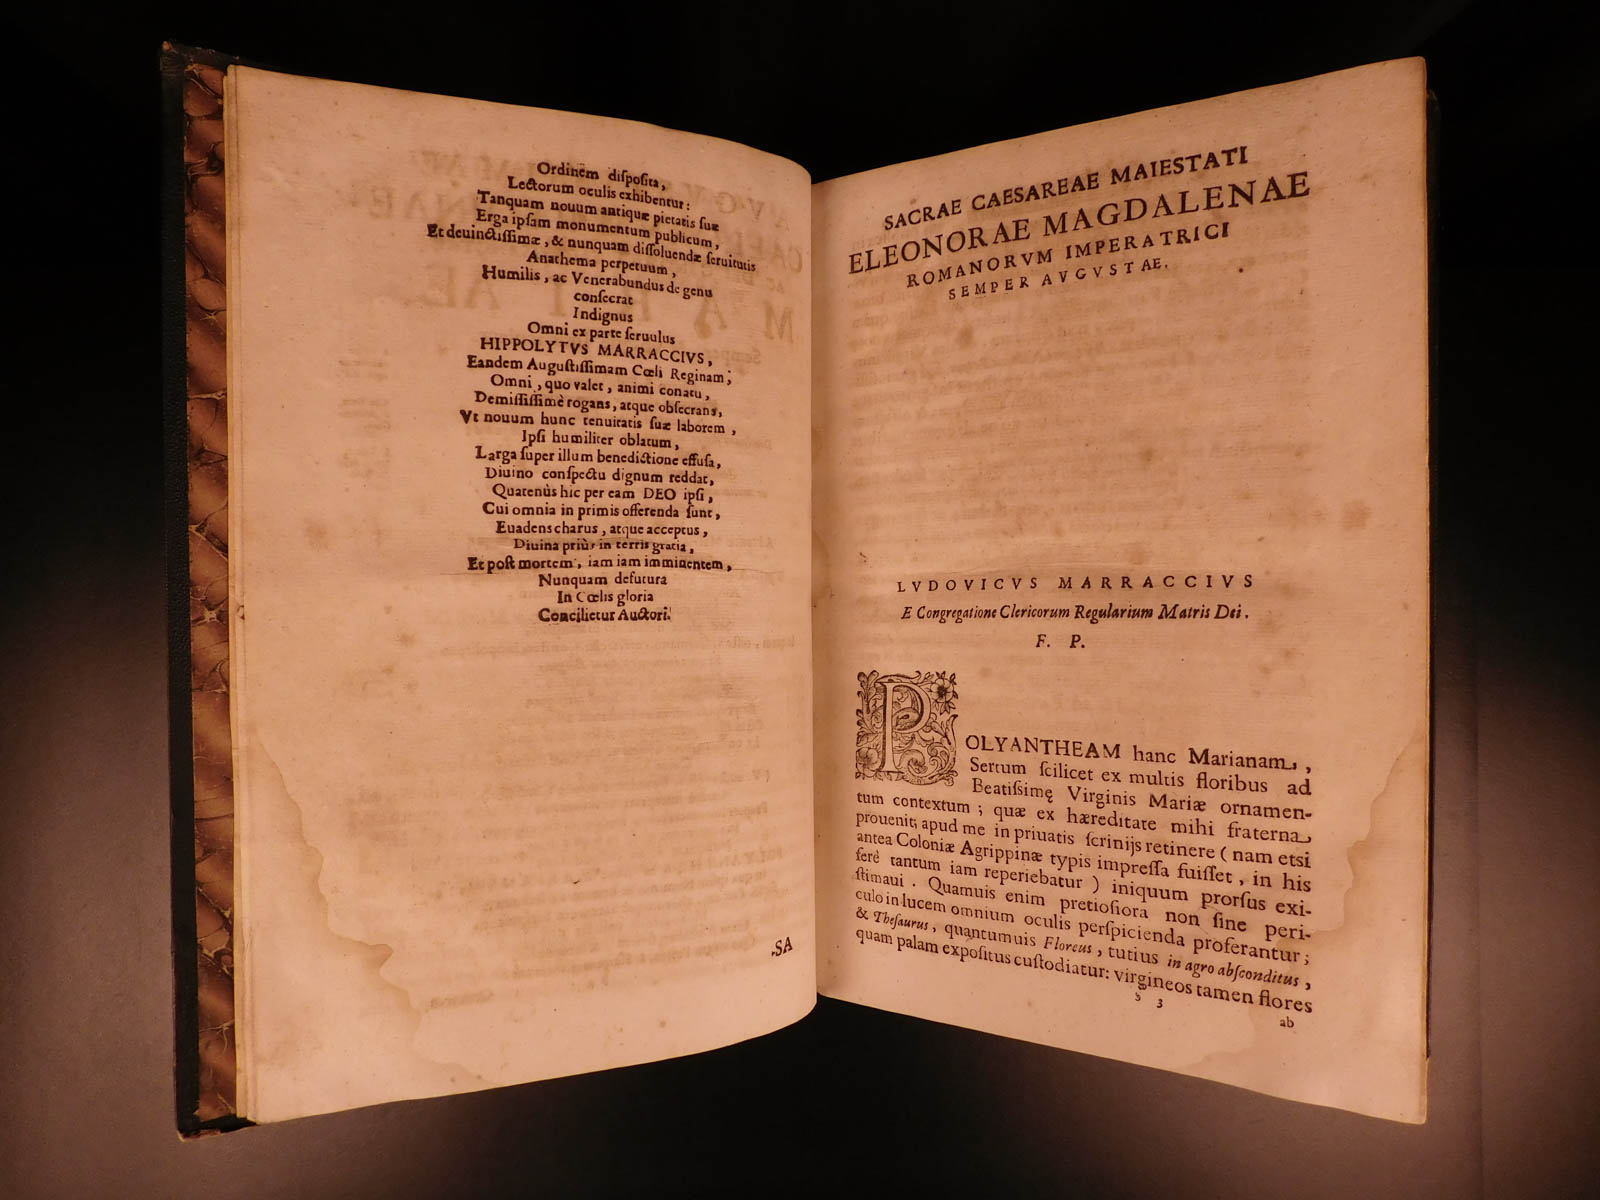 Ordinem diſpoſita,
Lectorum oculis exhibentur:
Tanquam nouum antiquæ pietatis ſuæ
Erga ipſam monumentum publicum,
Et deuinctiſſimæ, & nunquam diſſoluendæ ſeruitutis
Anathema perpetuum,
Humilis, ac Venerabundus de genu
conſecrat
Indignus
Omni ex parte ſeruulus
HIPPOLYTVS MARRACCIVS,
Eandem Auguſtiſſimam Cœli Reginam;
Omni, quo valet, animi conatu,
Demiſſiſſimè rogans, atque obſecrans,
Vt nouum hunc tenuitatis ſuæ laborem,
Ipſi humiliter oblatum,
Larga ſuper illum benedictione effuſa,
Diuino conſpectu dignum reddat,
Quatenùs hic per eam DEO ipſi,
Cui omnia in primis offerenda ſunt,
Euadens charus, atque acceptus,
Diuina priùs in terris gratia,
Et poſt mortem, iam iam imminentem,
Nunquam defutura
In Cœlis gloria
Concilietur Auctori.
SA
SACRAE CAESAREAE MAIESTATI
ELEONORAE MAGDALENAE
ROMANORVM IMPERATRICI
SEMPER AVGVSTAE.
LVDOVICVS MARRACCIVS
E Congregatione Clericorum Regularium Matris Dei.
F. P.
POLYANTHEAM hanc Marianam,
Sertum ſcilicet ex multis floribus ad
Beatiſſimę Virginis Mariæ ornamen-
tum contextum; quæ ex hæreditate mihi fraterna
prouenit, apud me in priuatis ſcrinijs retinere (nam etſi
antea Coloniæ Agrippinæ typis impreſſa fuiſſet, in his
ferè tantum iam reperiebatur) iniquum prorſus exi-
ſtimaui. Quamuis enim pretioſiora non ſine peri-
culo in lucem omnium oculis perſpicienda proferantur;
& Theſaurus, quantumuis Floreus, tutius in agro abſconditus,
quam palam expoſitus cuſtodiatur: virgineos tamen flores
§ 3
ab